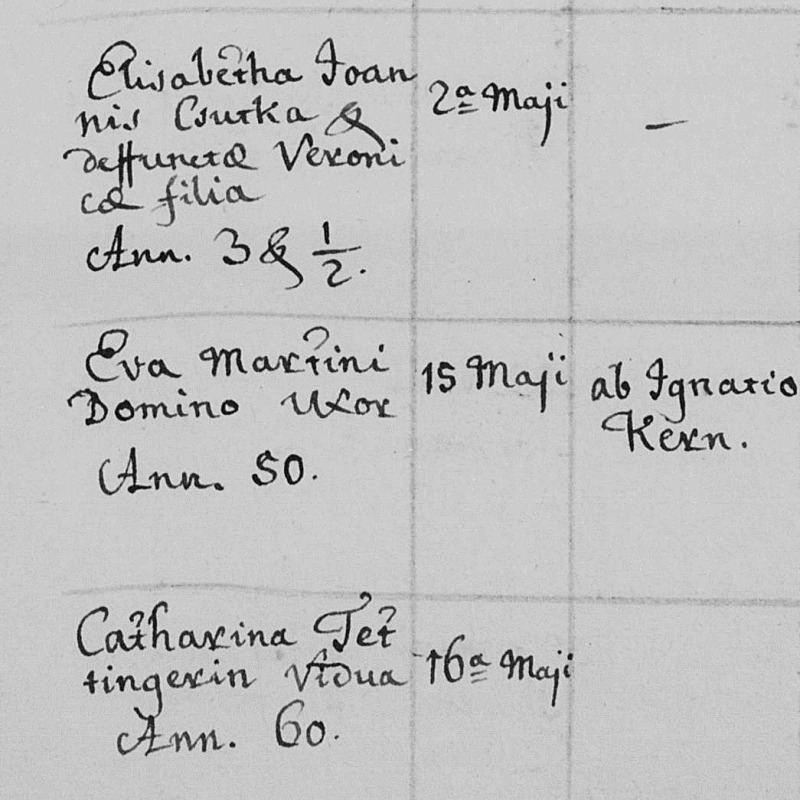 Elisabetha Joan
nis Csutka &
deffunctæ Veroni
cæ filia
Ann. 3 & 1/2.
2ª Maji
—
Eva Martini
Domino Uxor
Ann. 50.
15 Maji
ab Ignatio
Kern.
Catharina Tet
tingerin Vidua
Ann. 60.
16ª Maji